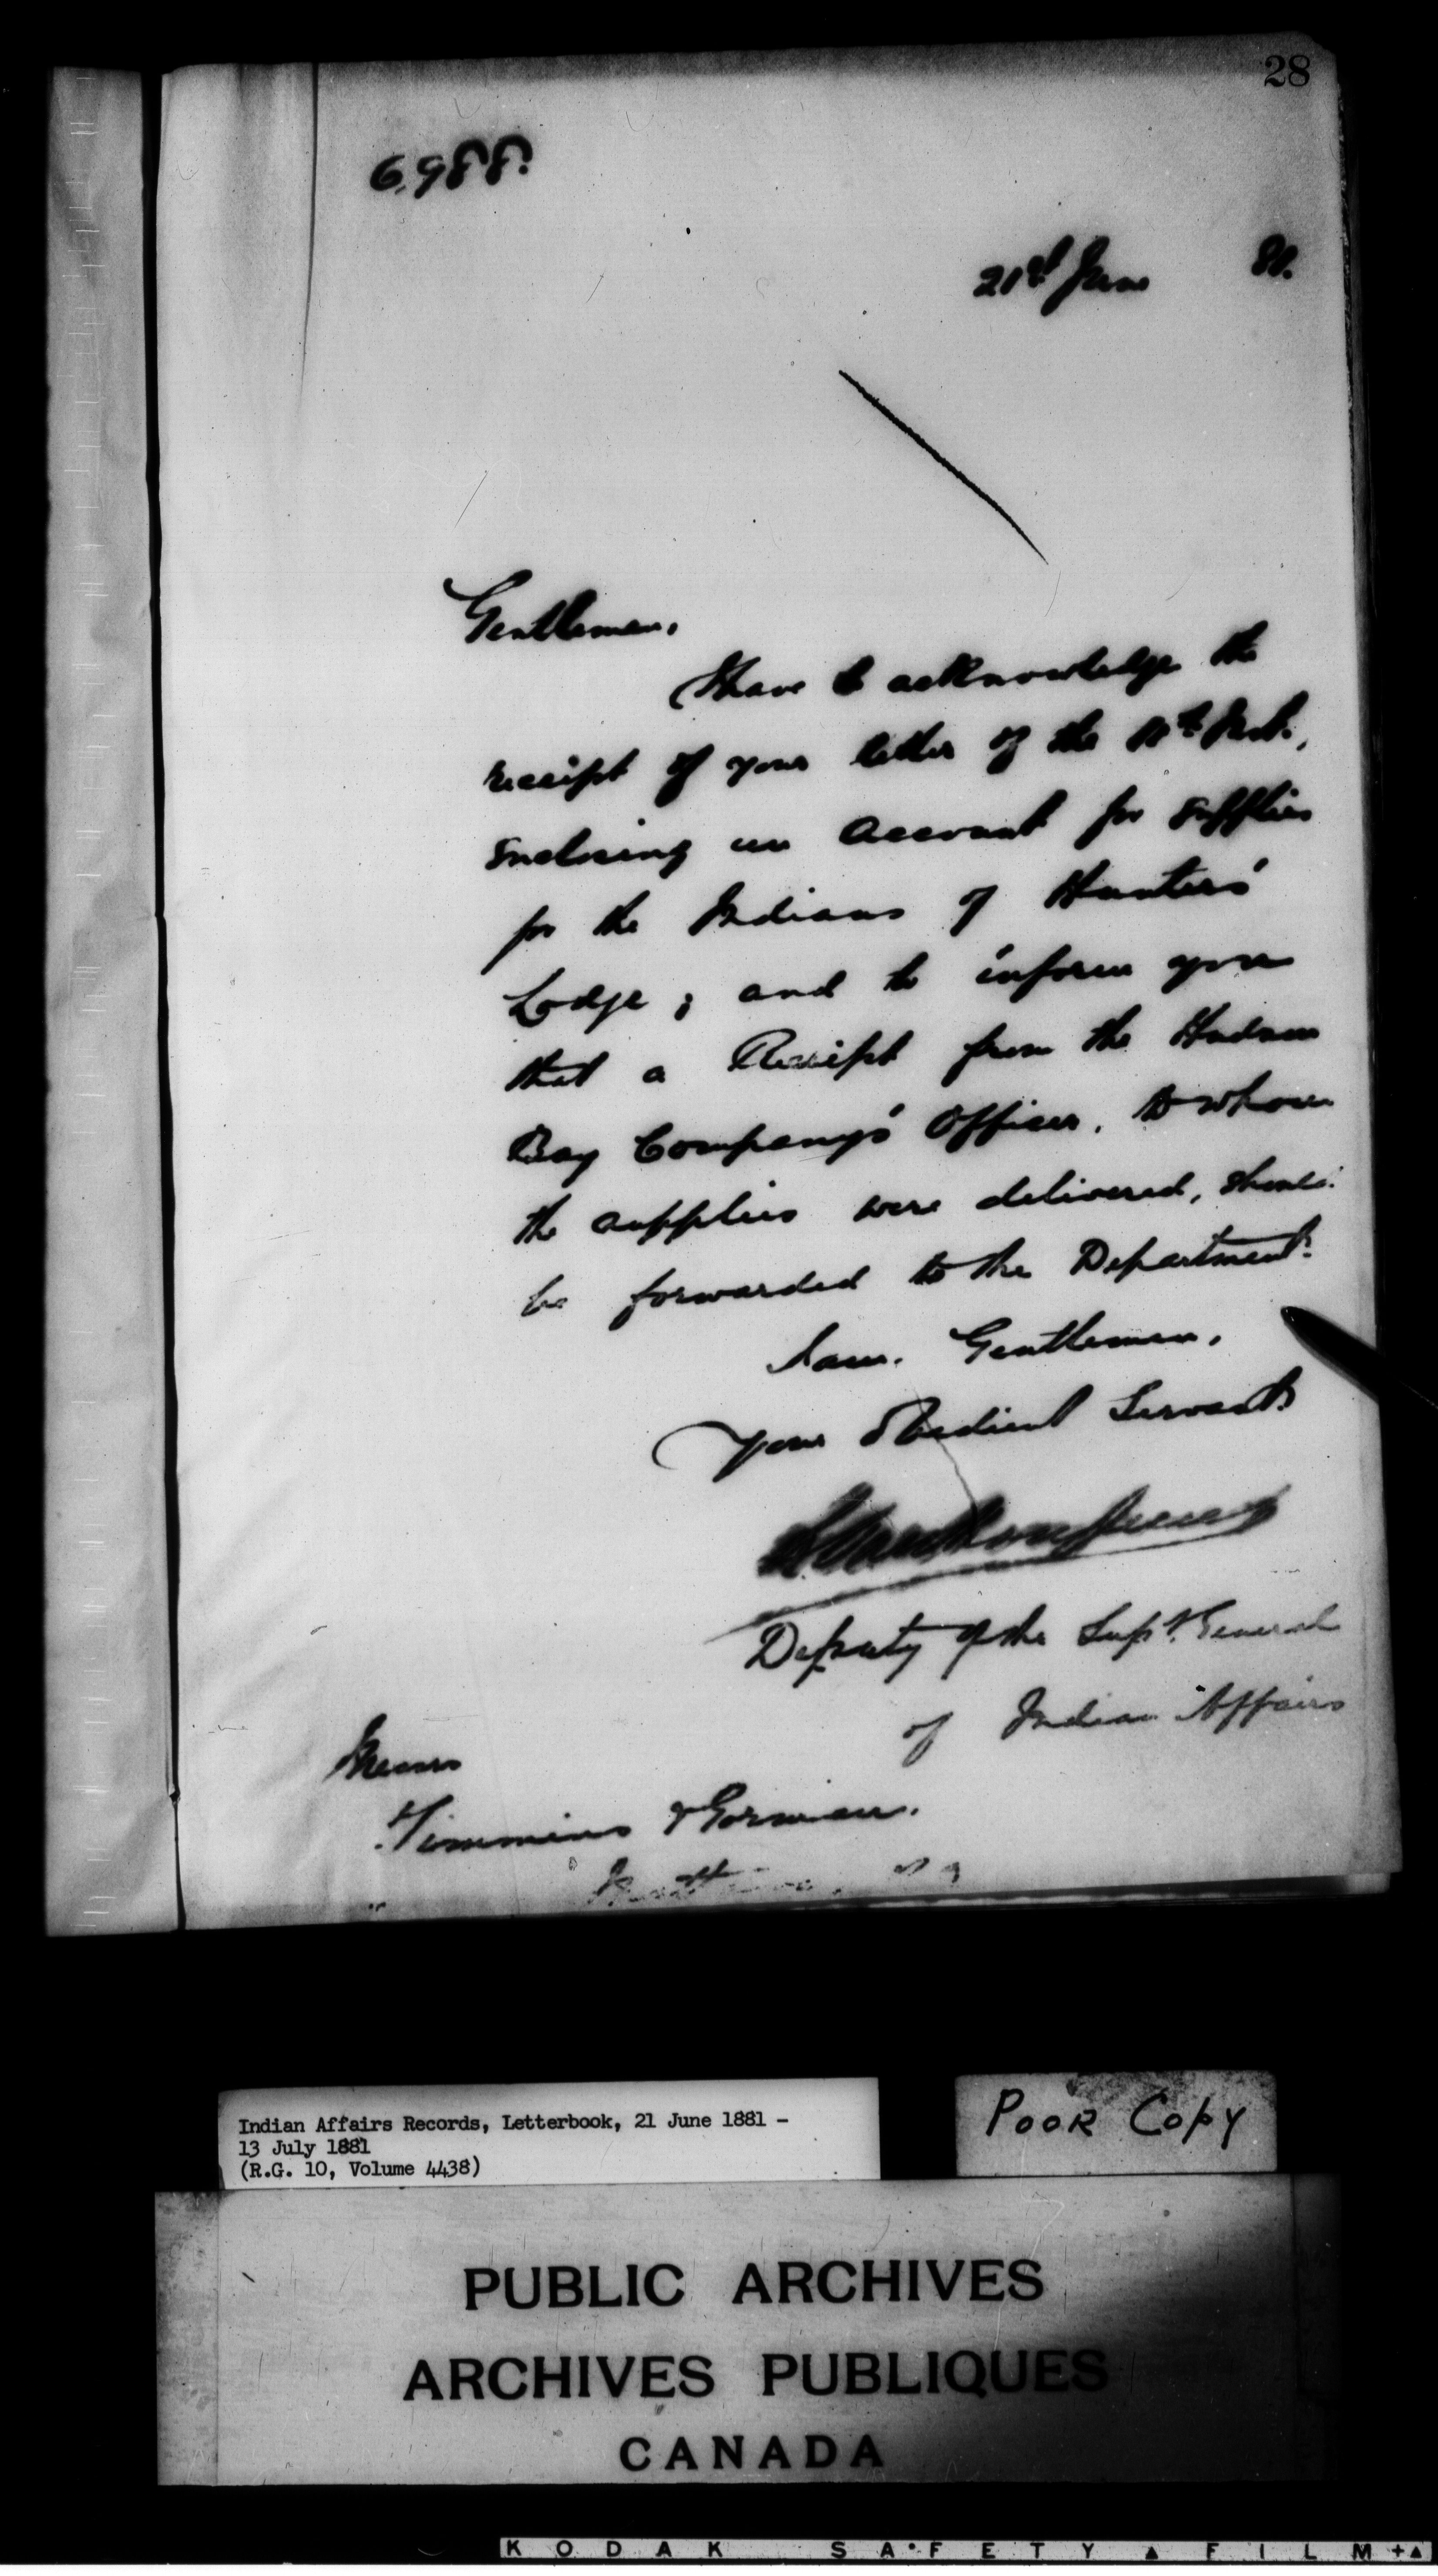 28
6,988.
21st June 81.
Gentlemen,
I have to acknowledge the
receipt of your letter of the 11th Inst.,
enclosing an Account for supplies
for the Indians of Hunters'
Lodge; and to inform you
that a Receipt from the Hudson
Bay Company's Officer, to whom
the supplies were delivered, should
be forwarded to the Department.
I am, Gentlemen,
Your Obedient Servant
Deputy of the Supt. General
of Indian Affairs
Messrs
Timmins & Gorman.
Indian Affairs Records, Letterbook, 21 June 1881 -
13 July 1881
(R.G. 10, Volume 4438)
POOR COPY
PUBLIC ARCHIVES
ARCHIVES PUBLIQUES
CANADA
KODAK SAFETY FILM